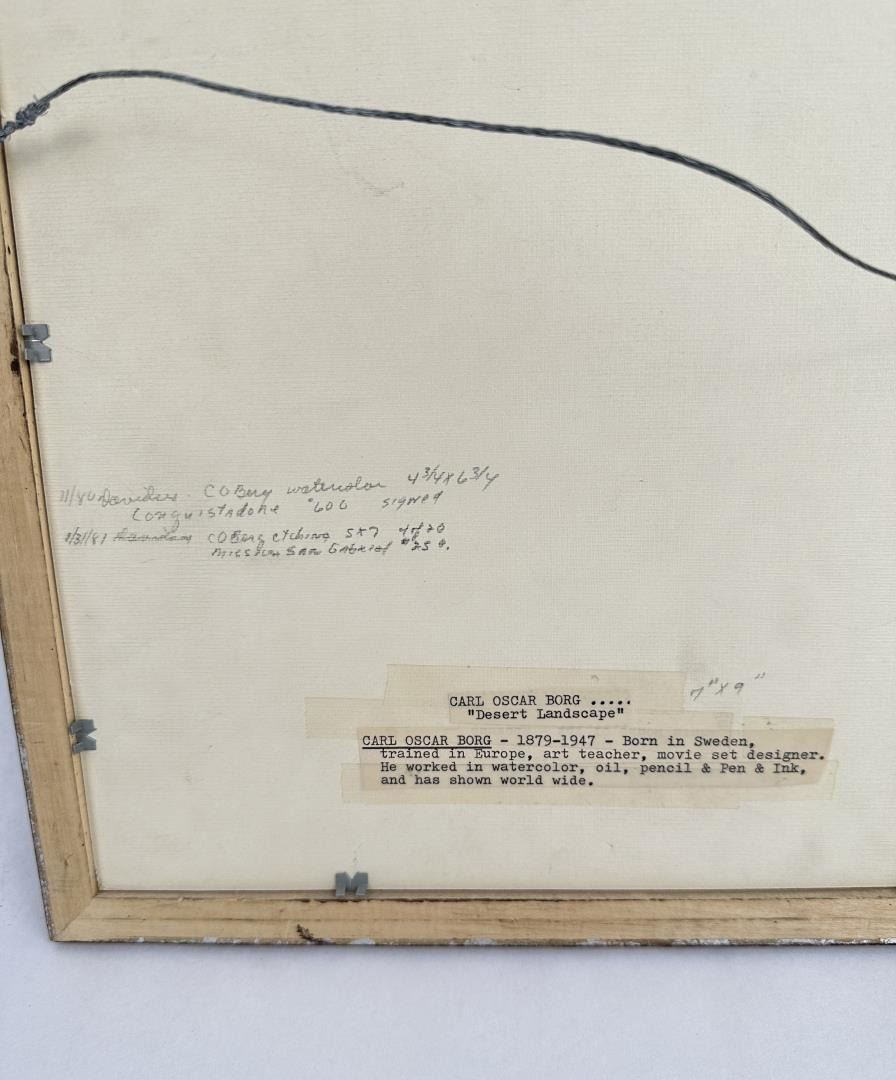 11/80 Davidsons. CO Borg watercolor 4 3/4 x 6 3/4
Conquistadore $600 signed
CO Borg etching 5x7 4 of 20
Mission San Gabriel
7" x 9"
CARL OSCAR BORG .....
"Desert Landscape"
CARL OSCAR BORG - 1879-1947 - Born in Sweden,
trained in Europe, art teacher, movie set designer.
He worked in watercolor, oil, pencil & Pen & Ink,
and has shown world wide.